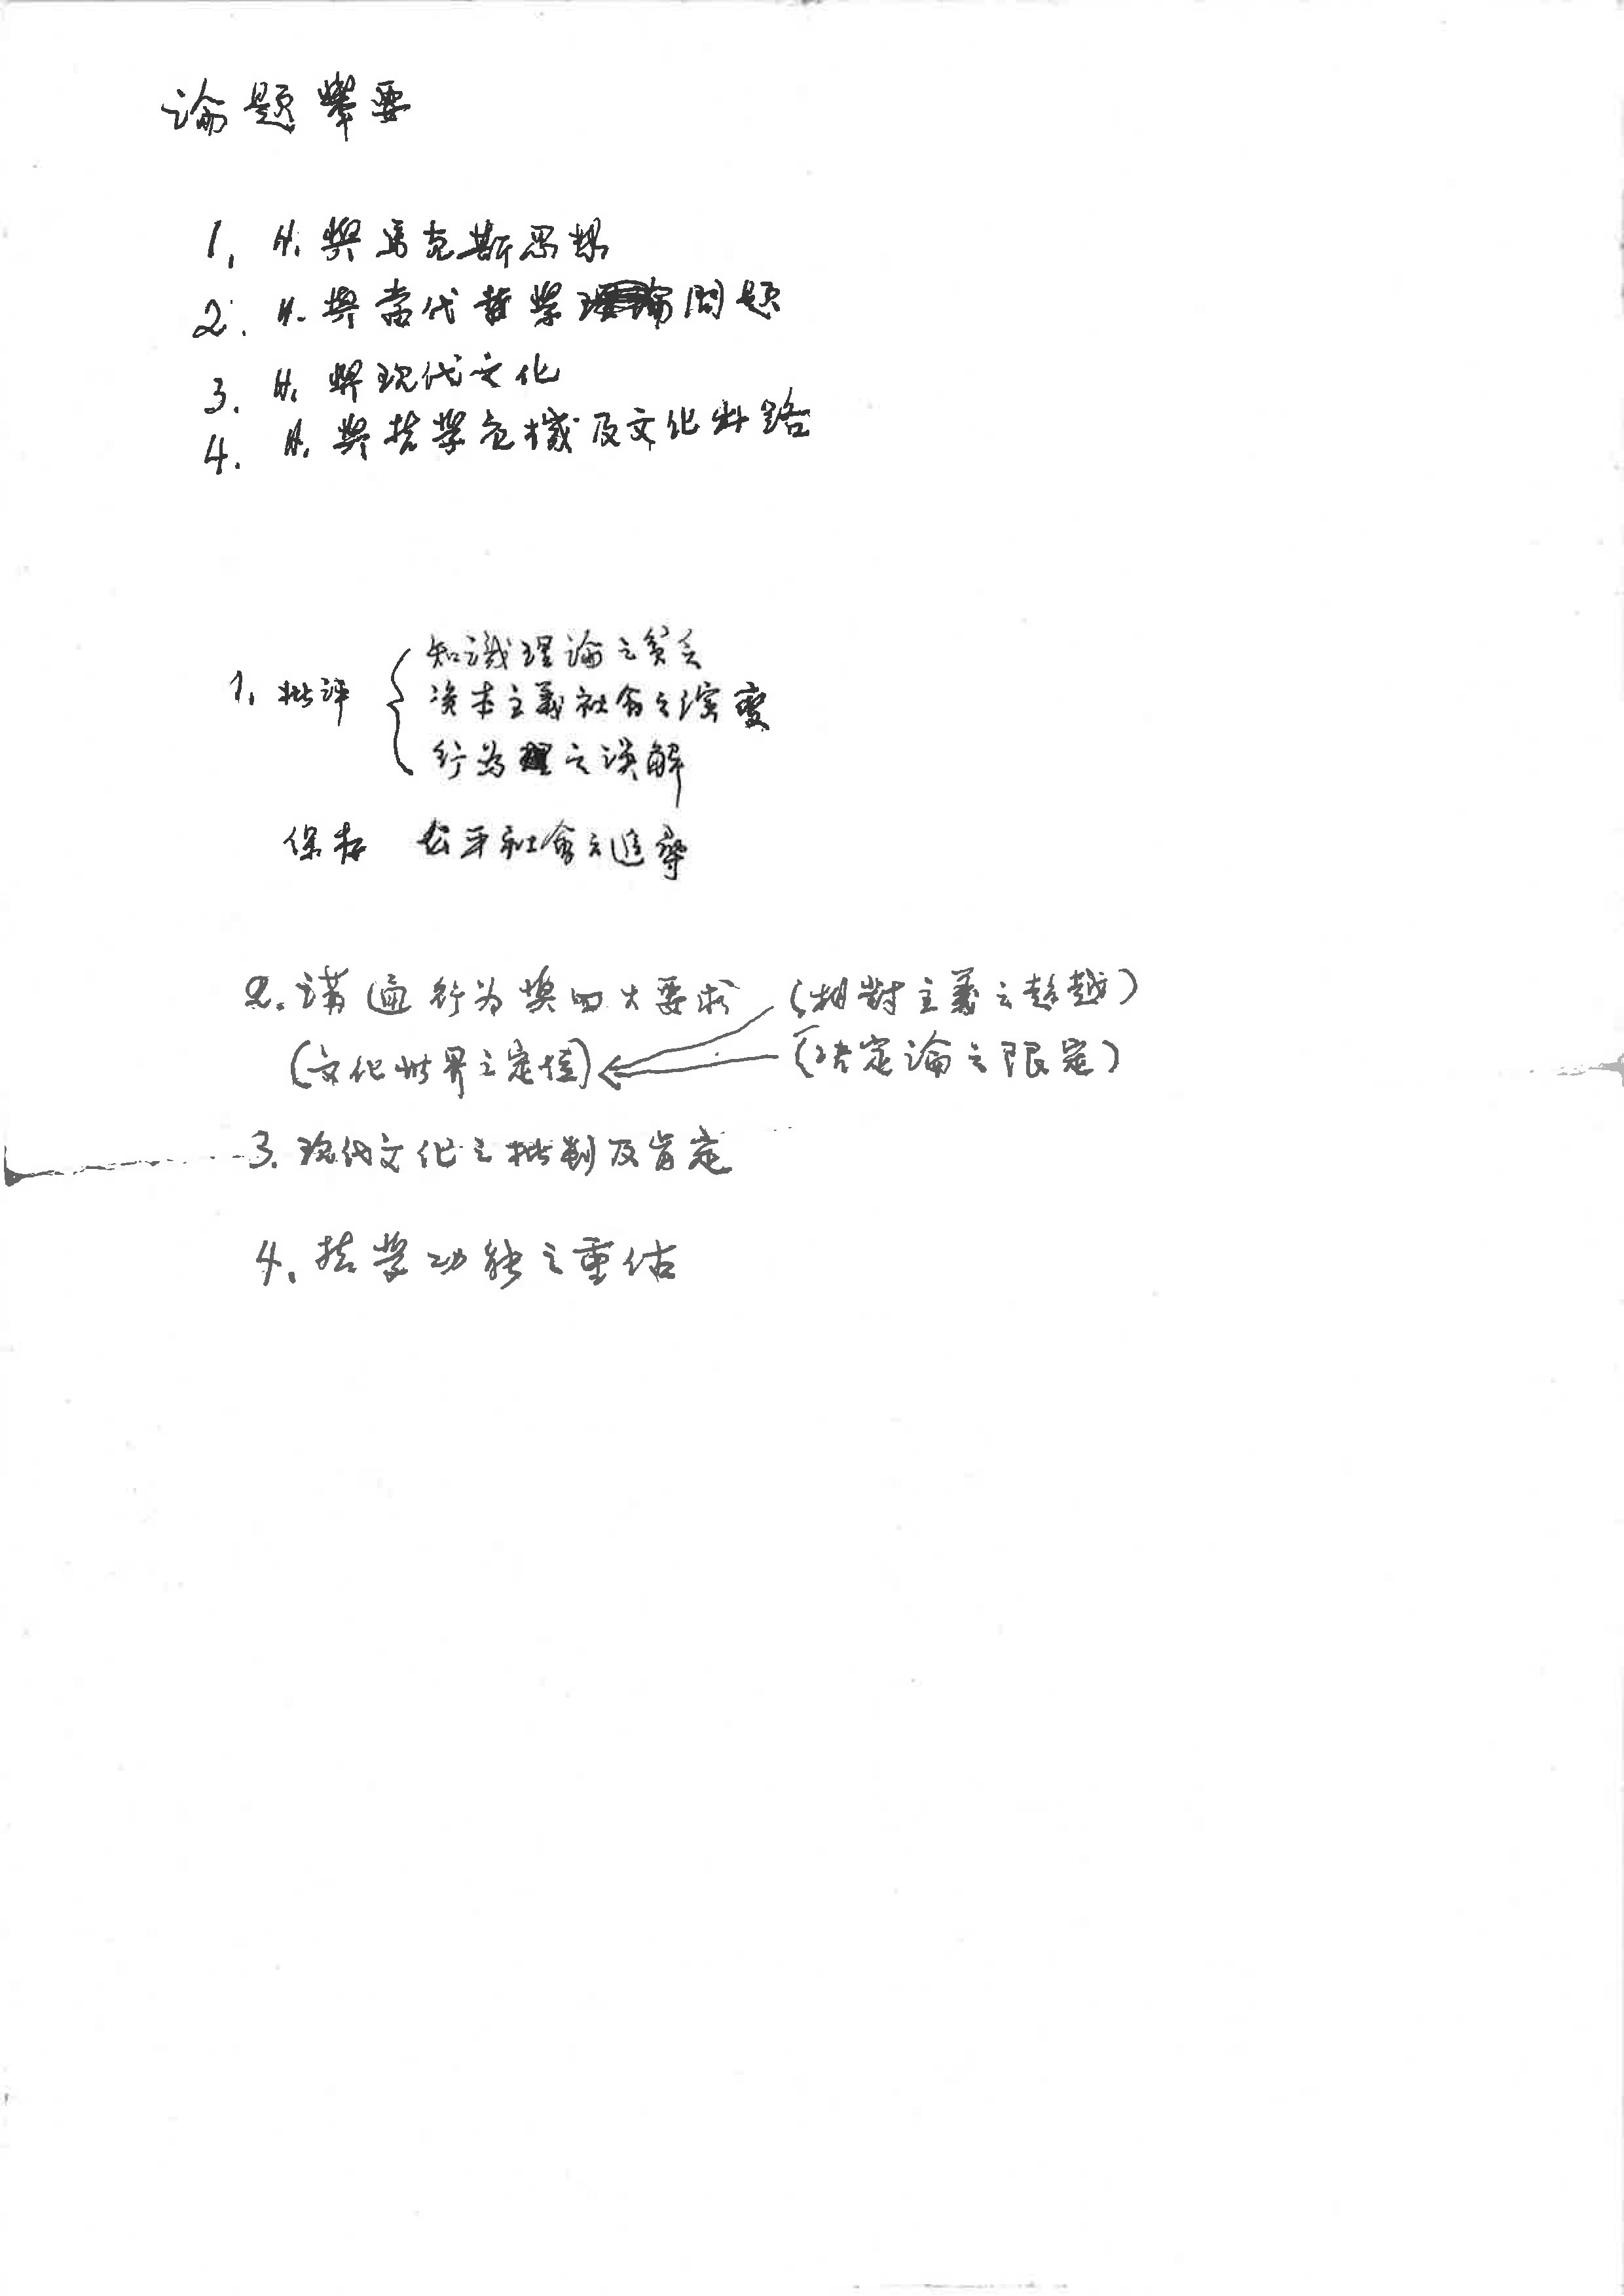 論題舉要
1. H. 與馬克斯思想
2. H. 與當代哲學問題
3. H. 與現代文化
4. H. 與哲學危機及文化出路
1. 批評
知識理論之貧乏
資本主義社會之演變
行為之誤解
保存 公平社會之追尋
2. 溝通行為與四大要求 (相對主義之超越)
(文化世界之定位) (決定論之限定)
3. 現代文化之批判及肯定
4. 哲學功能之重估